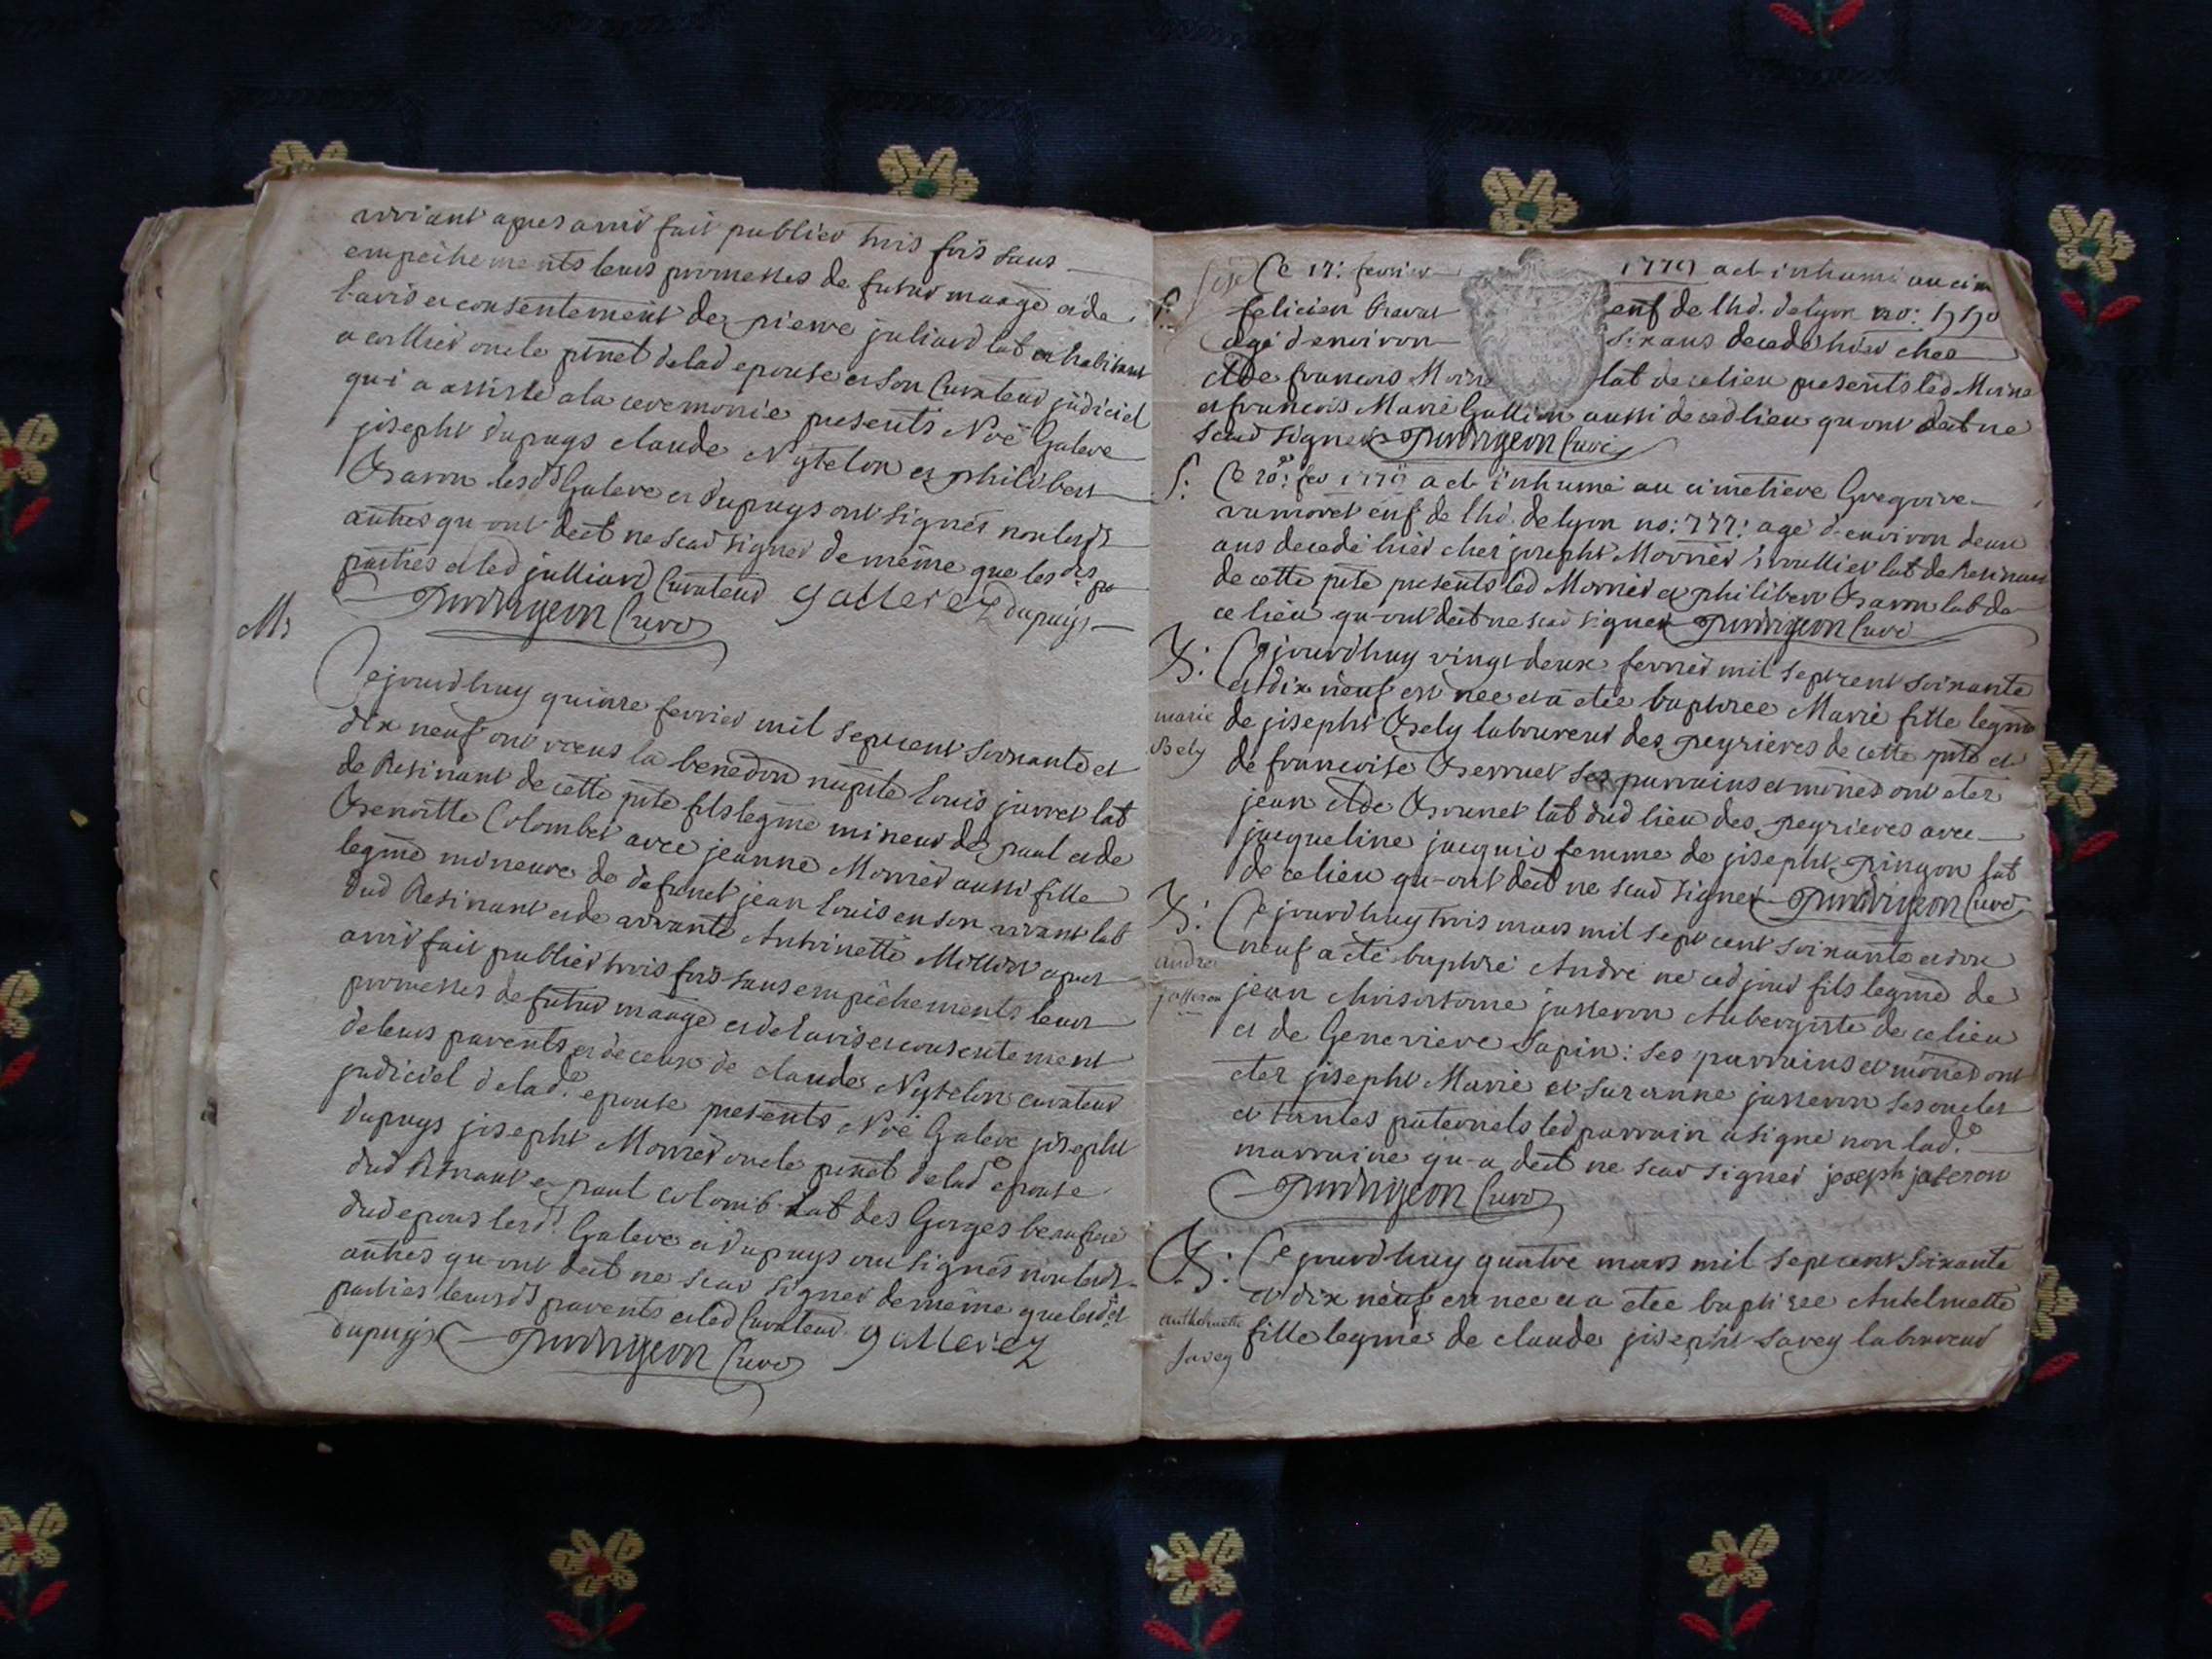 apres avoir fait publier trois fois sans
empeichements leurs promesses de futur maage et de
l'avis et consentement de pierre juliard lab et habitant
a oncle pnel de lad epouse et son Curateur judiciel
qui a assisté a la ceremonie presents Noë Galere
joseph dupuys claude Nytelon et philibert
Baron lesds Galere et dupuys ont signés non lesds
autres qu-ont deët ne scav signer de même que lesdes
parties et led julliard Curateur gallerez dupuys
Curé
M:
Cejourd'huy quinze fevrier mil septcent soixante et
dix neuf ont receus la benedon nuptle louis jarret lab
de Resinant de cette psse fils legme mineur de paul et de
Benoitte Colombet avec jeanne Morrier aussi fille
legme mineure de defunct jean louis en son vivant lab
dud Resinant et de vivante Anthoinette apres
avoir fait publier trois fois sans empêchements leurs
promesses de futur maage et de l'avis et consentement
de leurs parents et de ceux de claude Nytelon curateur
judiciel de lad.e epouse presents Noë Galere joseph
dupuys joseph Morrier oncle pnel de lade epouse
dud Resinant et paul colomb lab des Gorges beaufrere
dud epoux lesds Galere et dupuys ont signés non lesds
autres qu-ont deët ne scav signer de même que lesdes
parties leursds parents et led Curateur gallerez
dupuys Curé
Ce 17: fevrier 1779 a eté inhumé au cim
S: felicien enf de lhd. de lyon no:
agé d'environ six ans decedé hier ches
de francois lab de ce lieu presents led
et francois Marie Gallion aussi de ced lieu qu ont deët ne
scav signer Curé
S: Ce 20: fev 1779 a eté inhumé au cimetiere Gregoire
enf de lhd. de lyon no: 777: agé d'environ deux
ans decedé hier chez joseph Morrier lab de Resinant
de cette psse presents led Morrier et philibert Baron lab de
ce lieu qu-ont deët ne scav signer Curé
B: Cejourd'huy vingt deux fevrier mil septcent soixante
et dix neuf est née et a etée baptisée Marie fille legme
marie de joseph Bely laboureur des peyrieres de cette psse et
Bely de francoise Berruet ses parrains et mones ont etez
jean Brunet lab dud lieu des peyrieres avec
jacqueline jacquis femme de joseph pingon lab
de ce lieu qu-ont deët ne scav signer Curé
B: Cejourd'huy trois mars mil sept cent soixante et dix
neuf a eté baptisé André né ced jour fils legme de
andré
jasseron jean chrisostome jasseron Aubergiste de ce lieu
et de Genevieve Sapin: ses parrains et mones ont
etez joseph Marie et suzanne jasseron ses oncles
et tantes paternels led parrain a signé non lad.e
marraine qu-a deët ne scav signer joseph jaseron
Curé
B: Cejourd'huy quatre mars mil septcent soixante
et dix neuf est née et a etée baptisée Antelmette
anthelmette
Savey fille legme de claude joseph Savey laboureur